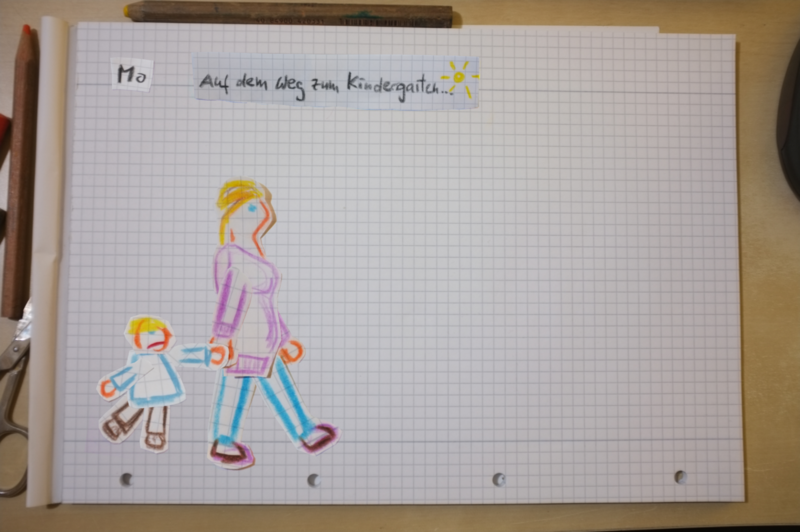 Mo
Auf dem Weg zum Kindergarten...